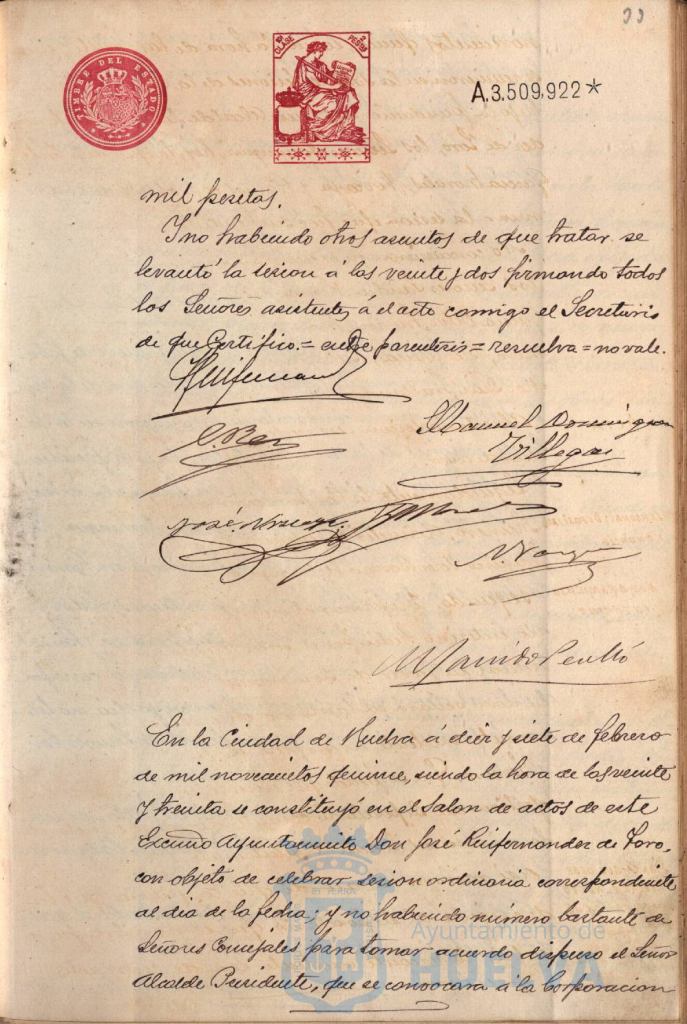 33
TIMBRE DEL ESTADO
CLASE
PESETAS
A.3.509.922*
mil pesetas.
Y no habiendo otros asuntos de que tratar se
levantó la sesion á las veinte y dos firmando todos
los Señores asistentes á el acto comigo el Secretario
de que Certifico.= entre parentesis = resuelva = no vale.
Manuel Dominguez
Villegas
José
En la Ciudad de Huelva á diez y siete de febrero
de mil novecientos quince, siendo la hora de las veinte
y treinta se constituyó en el Salon de actos de este
Excmo Ayuntamiento Don José Ruifernandez de Toro,
con objeto de celebrar sesion ordinaria correspondiente
al dia de la fecha; y no habiendo número bastante de
Señores Concejales para tomar acuerdo dispuso el Señor
Alcalde Presidente, que se convocara á la Corporacion
Ayuntamiento de
HUELVA